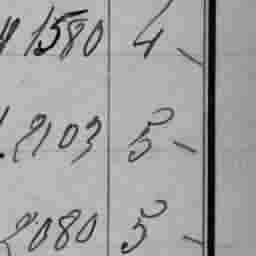 1580 4 -
2103 5 -
2080 5 -